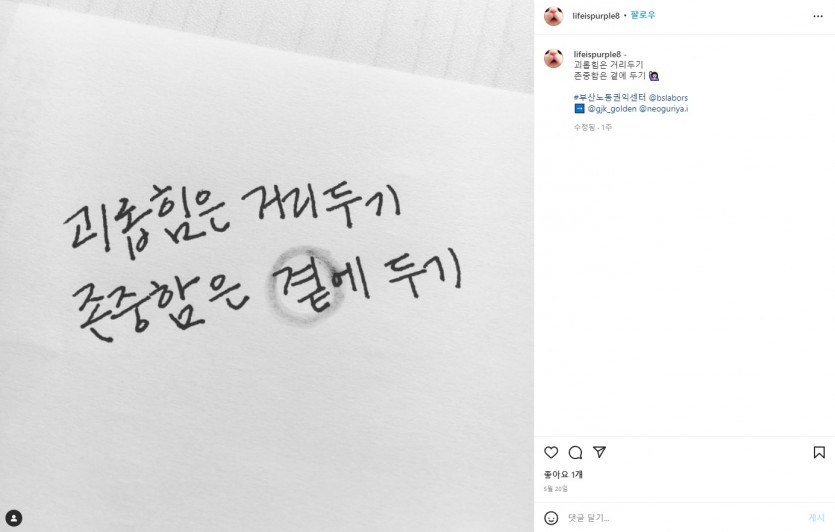 괴롭힘은 거리두기
존중함은 곁에 두기
lifeispurple8 • 팔로우
lifeispurple8 -
괴롭힘은 거리두기
존중함은 곁에 두기
#부산노동권익센터 @bslabors
@gjk_golden @neoguriya.i
수정됨 · 1주
좋아요 1개
5월 20일
댓글 달기...
게시